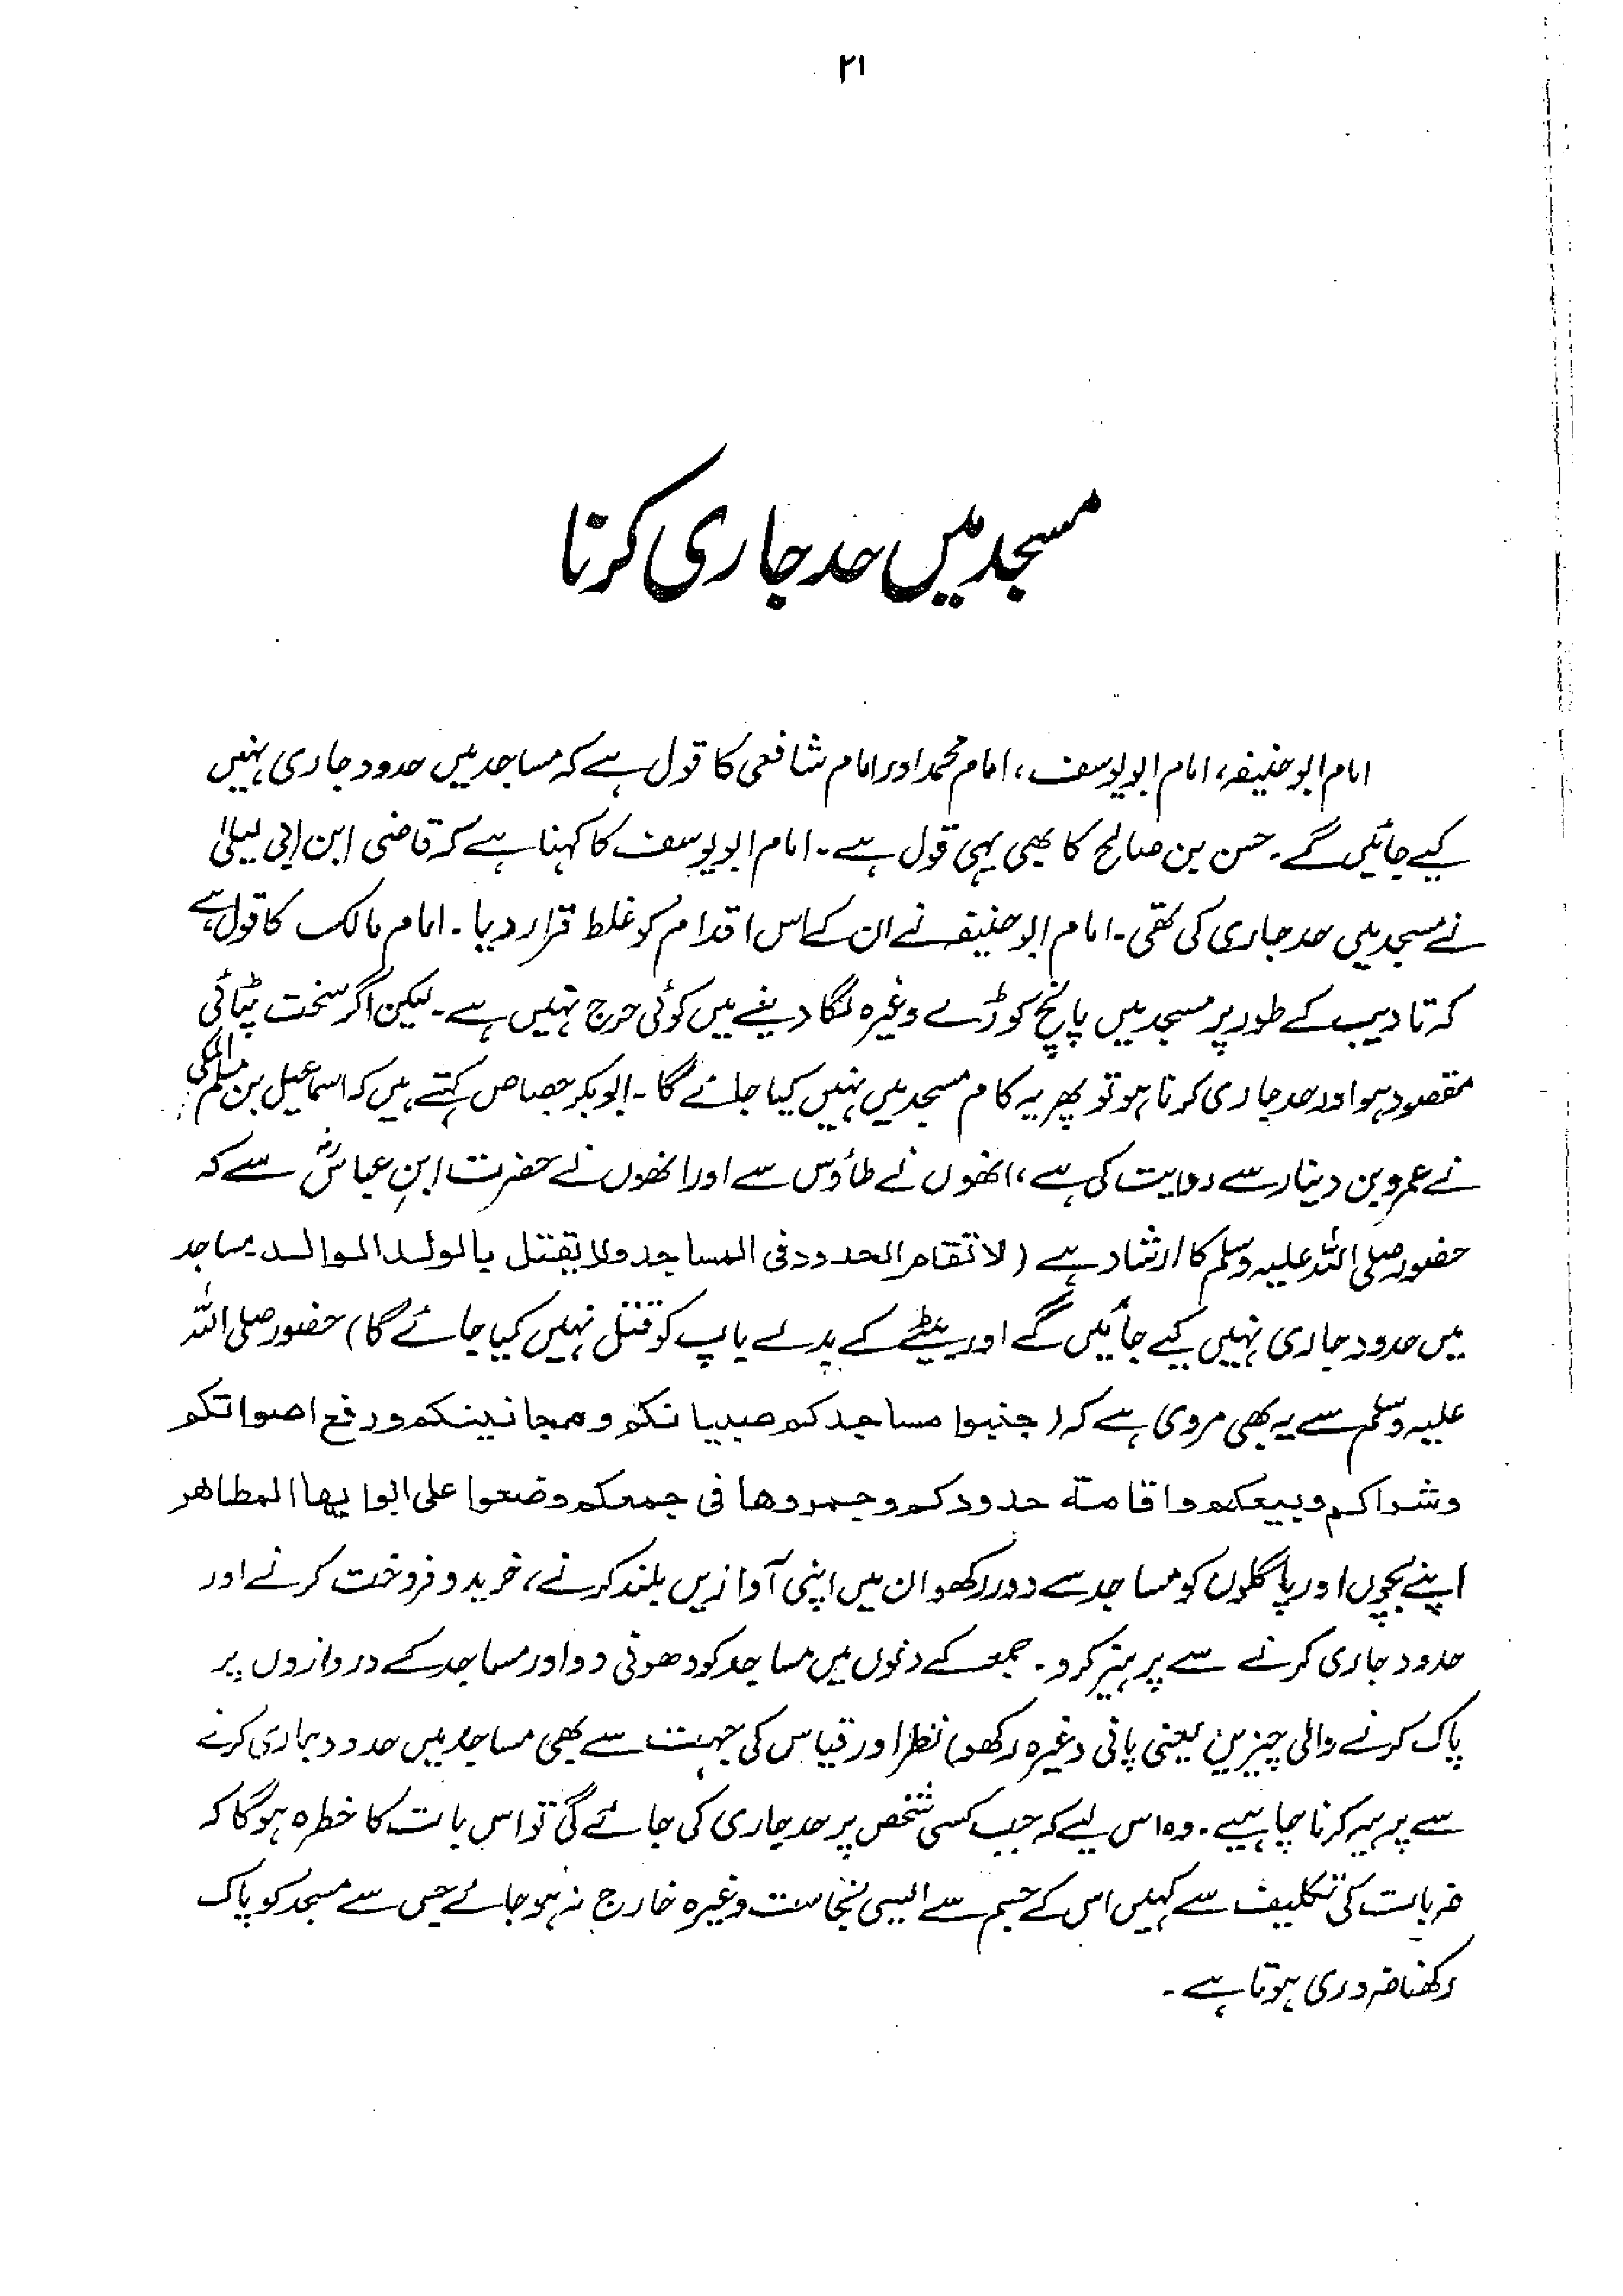 ۲۱
مسجد میں حد جاری کرنا
امام ابو حنیفہ، امام ابو یوسف، امام محمد اور امام شافعی کا قول ہے کہ مساجد میں حدود جاری نہیں
کیے جائیں گے۔ حسن بن صالح کا بھی یہی قول ہے۔ امام ابو یوسف کا کہنا ہے کہ قاضی ابن ابی لیلیٰ
نے مسجد میں حد جاری کی تھی۔ امام ابو حنیفہ نے ان کے اس اقدام کو غلط قرار دیا۔ امام مالک کا قول ہے
کہ تادیب کے طور پر مسجد میں پانچ کوڑے وغیرہ لگا دینے میں کوئی حرج نہیں ہے۔ لیکن اگر سخت پٹائی
مقصود ہو اور حد جاری کرنا ہو تو پھر یہ کام مسجد میں نہیں کیا جائے گا۔ ابوبکر جصاص کہتے ہیں کہ اسماعیل بن مسلم المکی
نے عمرو بن دینار سے روایت کی ہے، انھوں نے طاؤس سے اور انھوں نے حضرت ابنِ عباسؓ سے کہ
حضور صلی اللہ علیہ وسلم کا ارشاد ہے (لا تقام الحدود فی المساجد ولا یقتل بالولد الوالد مساجد
میں حدود جاری نہیں کیے جائیں گے اور بیٹے کے بدلے باپ کو قتل نہیں کیا جائے گا) حضور صلی اللہ
علیہ وسلم سے یہ بھی مروی ہے کہ (جنبوا مساجدکم صبیانکم و مجانینکم ورفع اصواتکم
وشراکم وبیعکم واقامۃ حدودکم وجمروها فی جمعکم وضعوا علی ابوابها المطاهر
اپنے بچوں اور پاگلوں کو مساجد سے دور رکھو ان میں اپنی آوازیں بلند کرنے، خرید و فروخت کرنے اور
حدود جاری کرنے سے پرہیز کرو۔ جمعہ کے دنوں میں مساجد کو دھونی دو اور مساجد کے دروازوں پر
پاک کرنے والی چیزیں یعنی پانی وغیرہ رکھو) نظر اور قیاس کی جہت سے بھی مساجد میں حدود جاری کرنے
سے پرہیز کرنا چاہیے۔ وہ اس لیے کہ جب کسی شخص پر حد جاری کی جائے گی تو اس بات کا خطرہ ہوگا کہ
ضربات کی تکلیف سے کہیں اس کے جسم سے ایسی نجاست وغیرہ خارج نہ ہو جائے جس سے مسجد کو پاک
رکھنا ضروری ہوتا ہے۔